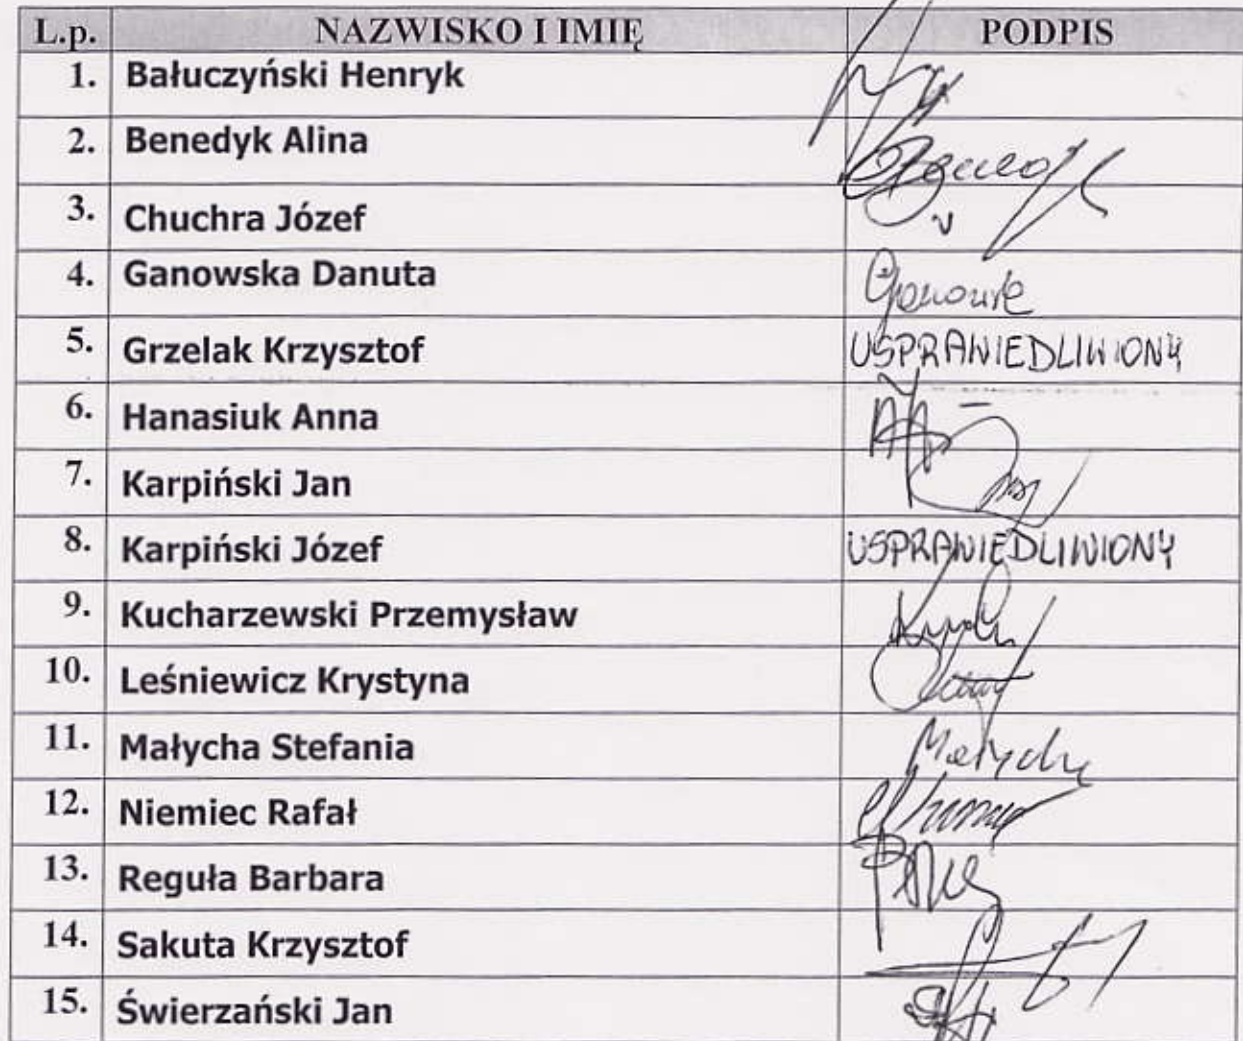 L.p. NAZWISKO I IMIĘ PODPIS
1. Bałuczyński Henryk
2. Benedyk Alina
3. Chuchra Józef
4. Ganowska Danuta
5. Grzelak Krzysztof USPRAWIEDLIWIONY
6. Hanasiuk Anna
7. Karpiński Jan
8. Karpiński Józef USPRAWIEDLIWIONY
9. Kucharzewski Przemysław
10. Leśniewicz Krystyna
11. Małycha Stefania Małycha
12. Niemiec Rafał
13. Reguła Barbara
14. Sakuta Krzysztof
15. Świerzański Jan